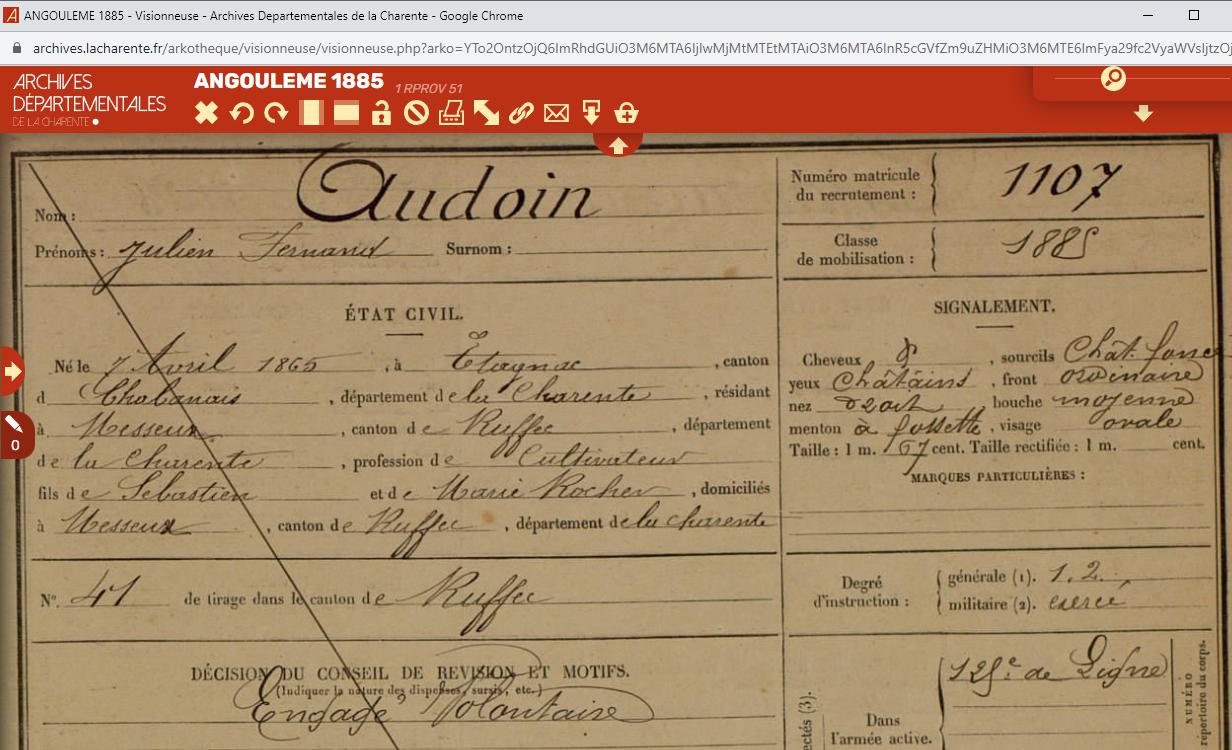 ANGOULEME 1885 - Visionneuse - Archives Departementales de la Charente - Google Chrome
ARCHIVES
DÉPARTEMENTALES
DE LA CHARENTE
ANGOULEME 1885 1 RPROV 51
0
Nom : Audoin
Prénoms : Julien Fernand Surnom :
Numéro matricule
du recrutement : 1107
Classe
de mobilisation : 1885
ÉTAT CIVIL.
Né le 7 Avril 1865, à Etagnac, canton
d Chabanais, département de la Charente, résidant
à Messeux, canton de Ruffec, département
de la Charente, profession de Cultivateur
fils de Sébastien et de Marie Rocher, domiciliés
à Messeux, canton de Ruffec, département de la Charente
N° 41 de tirage dans le canton de Ruffec
DÉCISION DU CONSEIL DE REVISION ET MOTIFS.
(Indiquer la nature des dispenses, sursis, etc.)
Engagé Volontaire
SIGNALEMENT.
Cheveux &, sourcils Chât. foncé
yeux Châtains, front ordinaire
nez droit bouche moyenne
menton à fossette, visage ovale
Taille : 1 m. 67 cent. Taille rectifiée : 1 m. cent.
MARQUES PARTICULIÈRES :
Degré
d'instruction :
générale (1). 1. 2.
militaire (2). exercé
Dans
l'armée active.
125e de Ligne
NUMÉRO
répertoire du corps.